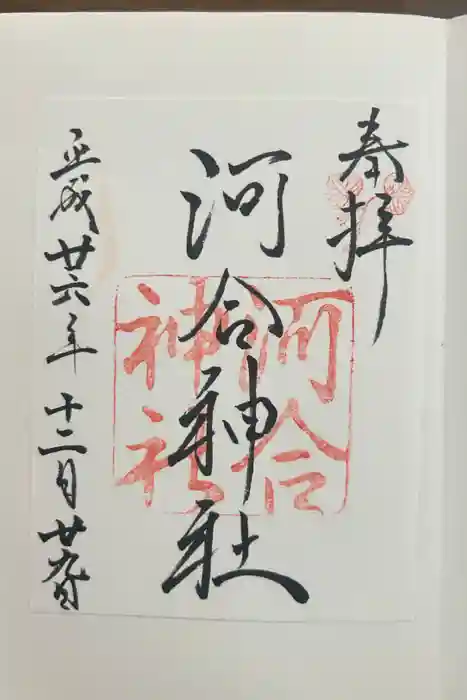 奉拝
河合神社
河合
神社
平成廿六年十二月廿九日